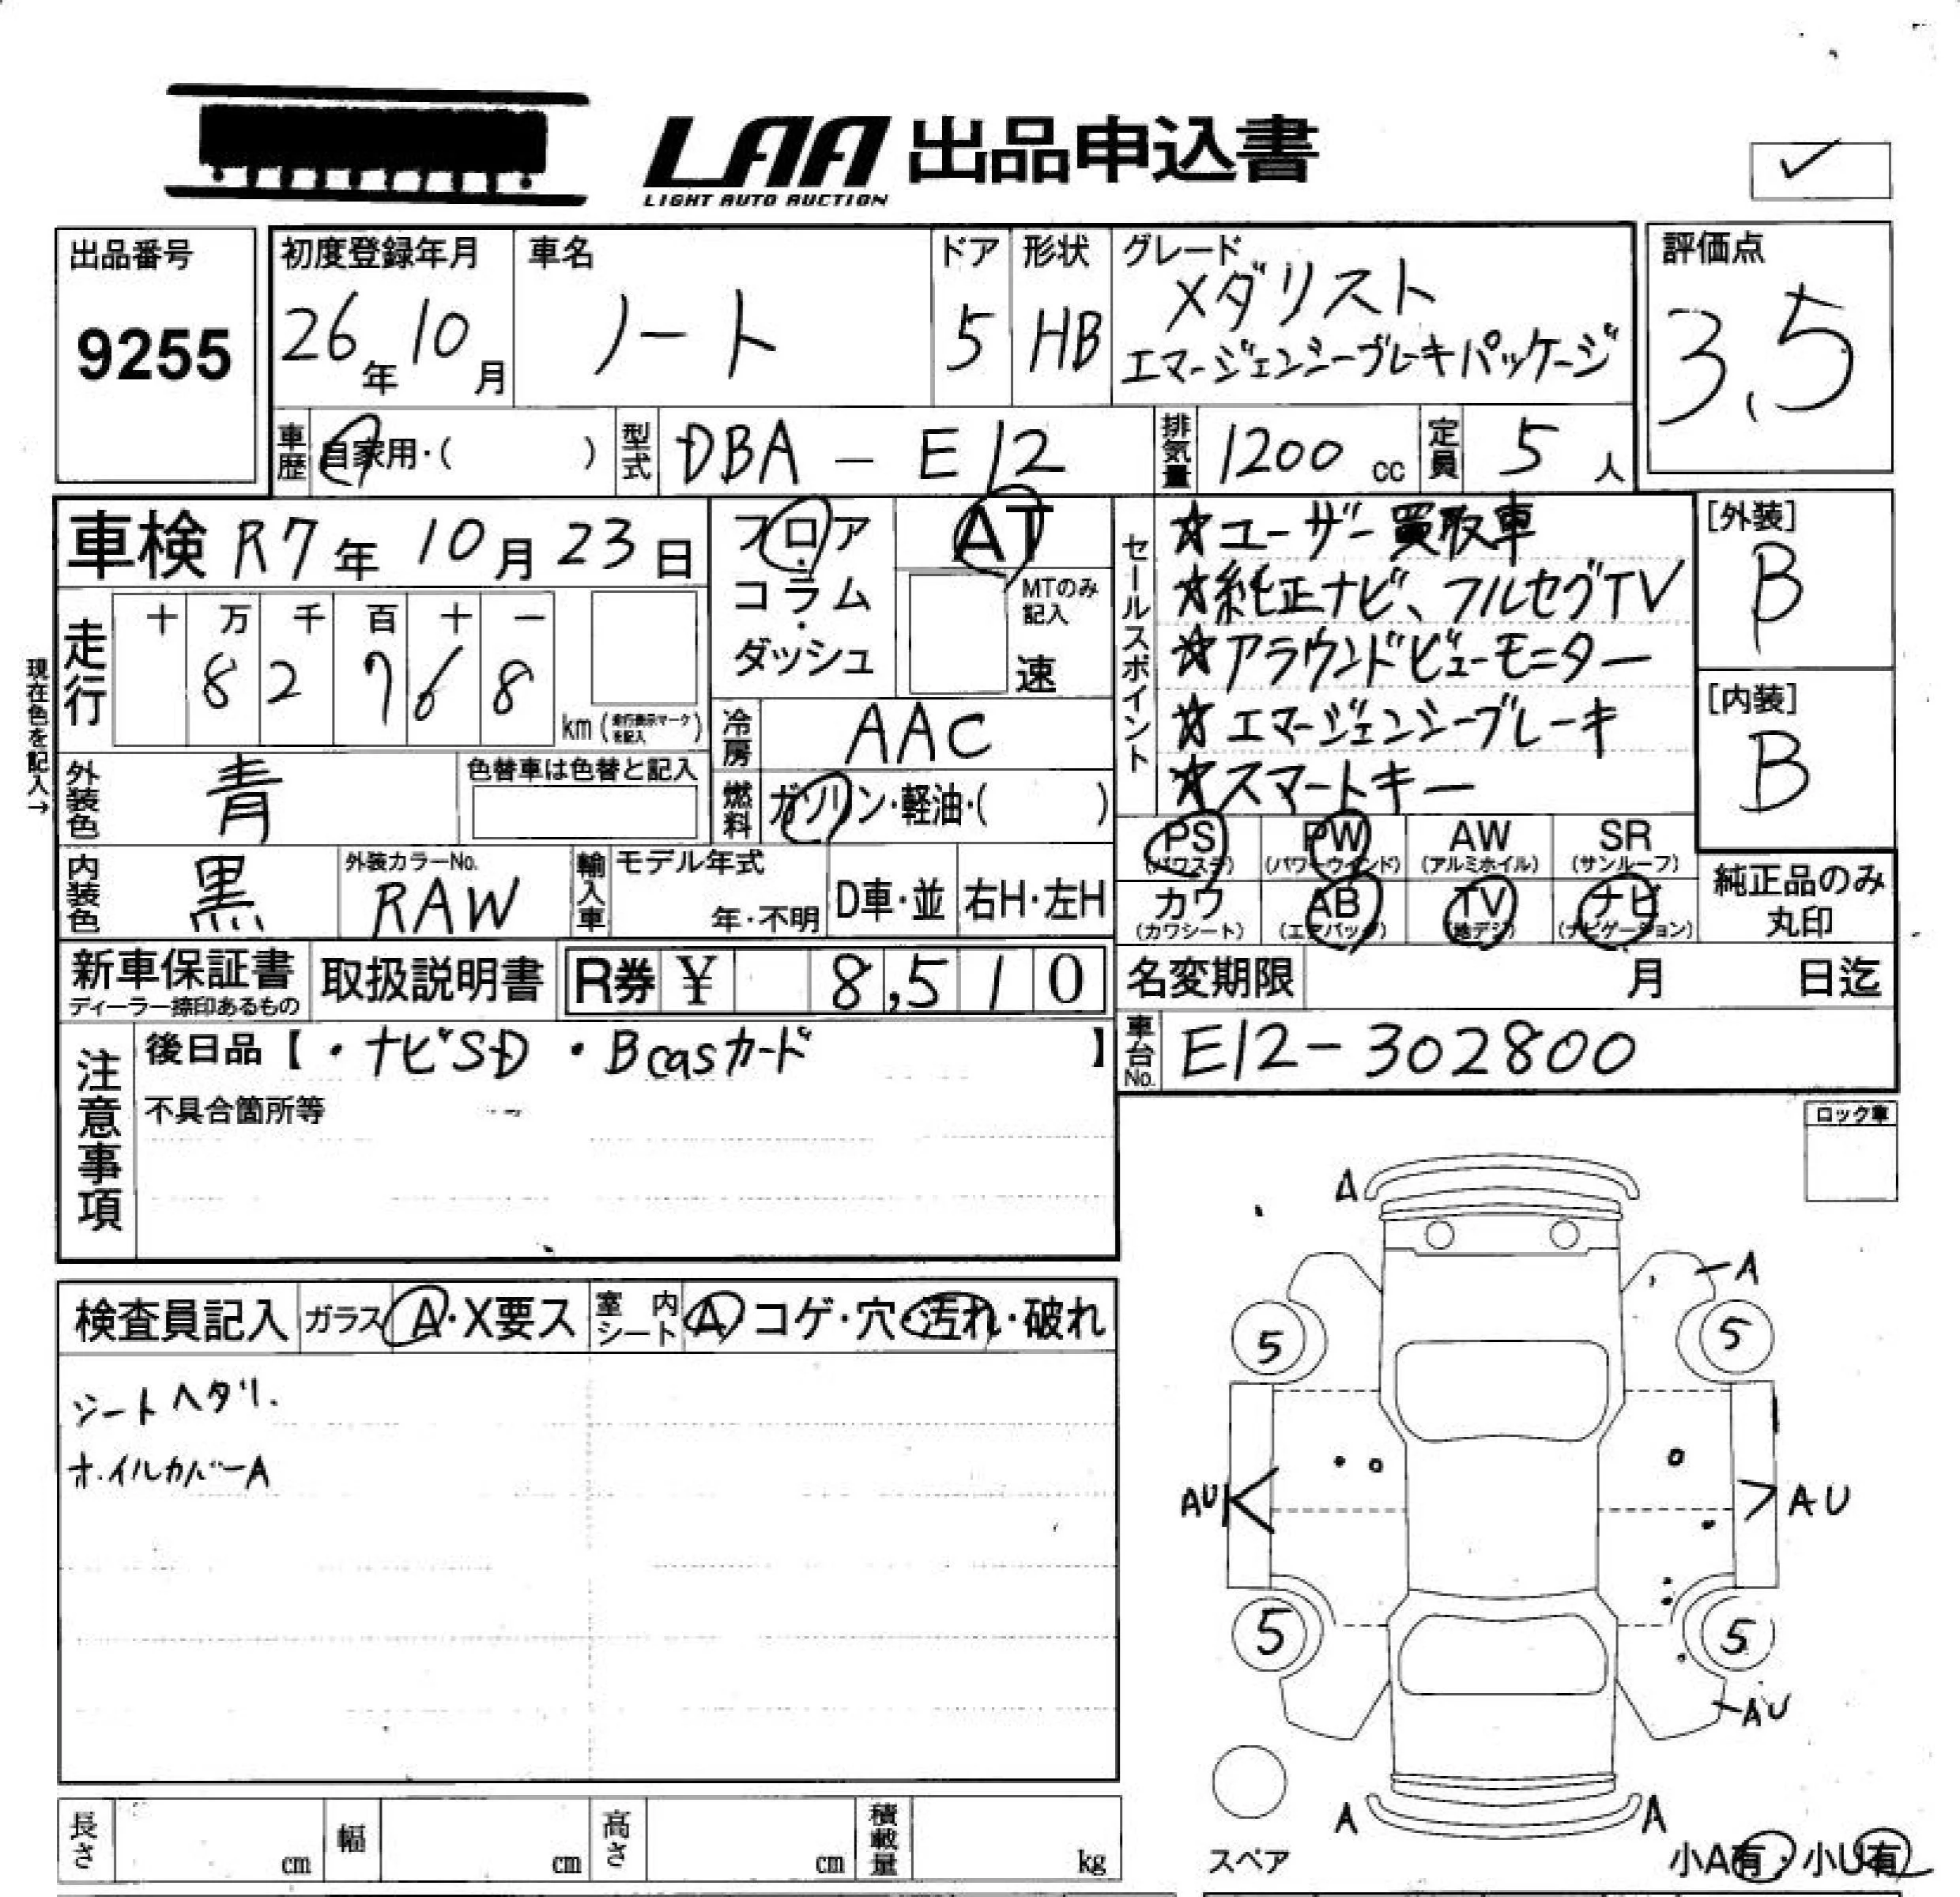 LAA 出品申込書
LIGHT AUTO AUCTION
出品番号
9255
初度登録年月
26年10月
車名
ノート
ドア
5
形状
HB
グレード
メダリスト
エマージェンシーブレーキパッケージ
評価点
3.5
車歴 自家用・( )
型式 DBA-E12
排気量 1200cc
定員 5人
車検 R7年10月23日
現在色を記入→
走行
十 万 千 百 十 一
8 2 7 6 8
km(走行表示マークを記入)
フロア・コラム・ダッシュ
AT
MTのみ記入
速
冷房 AAC
燃料 ガソリン・軽油・( )
外装色 青
色替車は色替と記入
内装色 黒
外装カラーNo.
RAW
輸入車
モデル年式
年・不明
D車・並
右H・左H
セールスポイント
☆ユーザー買取車
☆純正ナビ、フルセグTV
☆アラウンドビューモニター
☆エマージェンシーブレーキ
☆スマートキー
[外装]
B
[内装]
B
PS (パワステ)
PW (パワーウインド)
AW (アルミホイル)
SR (サンルーフ)
カワ (カワシート)
AB (エアバッグ)
TV (地デジ)
ナビ (ナビゲーション)
純正品のみ丸印
新車保証書
ディーラー捺印あるもの
取扱説明書
R券 ¥ 8,510
名変期限 月 日迄
車台No. E12-302800
注意事項
後日品【・ナビSD ・Bcasカード 】
不具合箇所等
ロック車
検査員記入
ガラス A・X要ス
室内シート A コゲ・穴・汚れ・破れ
シートヘタリ.
ホイルカバーA
A
A
5
5
AU
AU
5
5
AU
A
A
スペア
小A有・小U有
長さ cm
幅 cm
高さ cm
積載量 kg